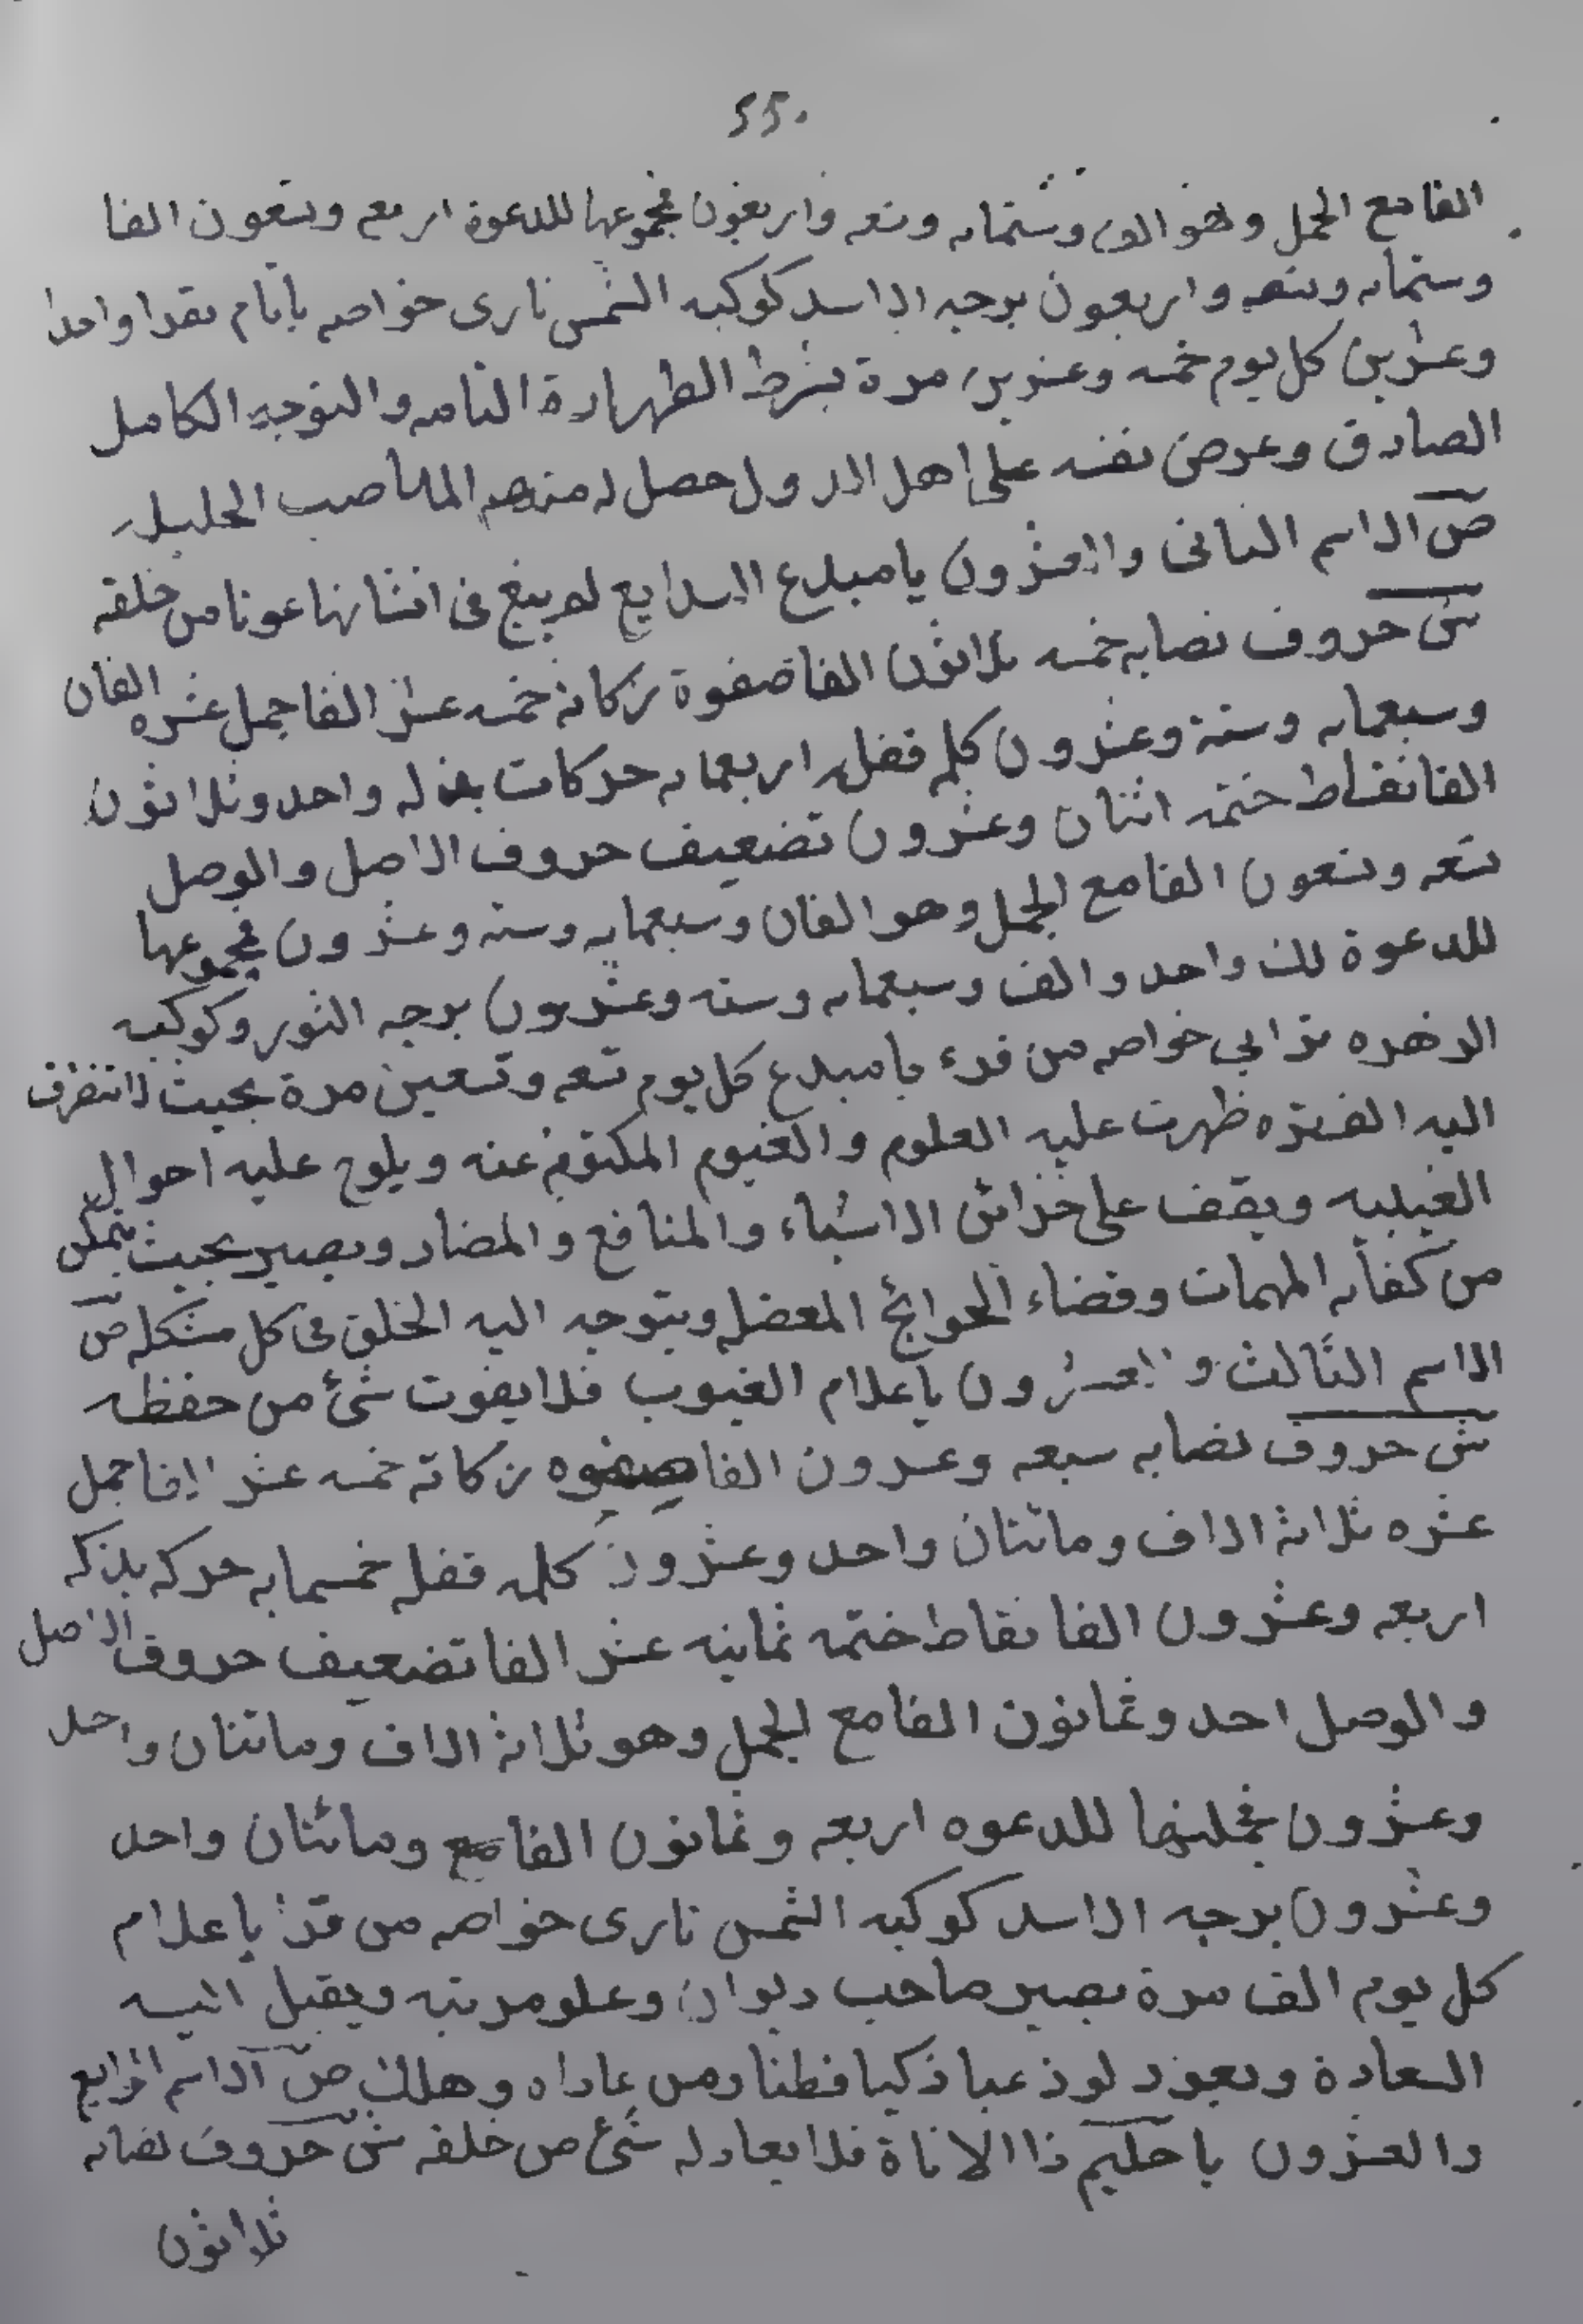 ٢٢٠
الفا مع الجمل وهو الف وستمايه وتسعه واربعون مجموعها للدعوة اربع وتسعون الفا
وستمايه وتسعه واربعون برجه الاسد كوكبه الشمس نارى خواصه باتام تقدا واحدا
وعشرين كل يوم خمسه وعشرين مرة بشرط الطهارة التامه والتوجه الكامل
الصادق وعرض نفسه على اهل الدول حصل له منهم المناصب الجليله
ص الاسم الثانى والعشرون يا مبدع البدايع لم يبغ فى انشائها عونا من خلقه
ش حروف نصابه خمسه ثلاثون الفا صفوة زكاته خمسه عشر الفا جمل عشره الفان
وسبعمايه وستة وعشرون كله قفله اربعمايه حركات بذله واحد وثلاثون
الفا نقاط ختمه اثنان وعشرون تضعيف حروف الاصل والوصل
تسعه وتسعون الفا مع الجمل وهو الفان وسبعمايه وسته وعشرون مجموعها
للدعوة لك واحد والف وسبعمايه وسته وعشرون برجه الثور وكوكبه
الزهره ترابي خواصه من قرء يا مبدع كل يوم تسعه وتسعين مرة بحيث لا تتطرق
اليه الفتره ظهرت عليه العلوم والغيوم المكتوم عنه ويلوح عليه احوال
الغيبيه ويقف على خزائن الاشياء والمنافع والمضار ويصير بحيث يتمكن
من كفايه المهمات وقضاء الحوائج المعضله ويتوجه اليه الخلق فى كل مشكله ص
الاسم الثالث والعشرون يا علام الغيوب فلا يفوت شئ من حفظه
ش حروف نصابه سبعه وعشرون الفا صفوه زكاته خمسه عشر الفا جمل
عشره ثلاثة الاف ومائتان واحد وعشرون كله قفله خمسمايه حركه بذله
اربعه وعشرون الفا نقاط ختمه ثمانيه عشر الفا تضعيف حروف الاصل
والوصل احد وثمانون الفا مع الجمل وهو ثلاثة الاف ومائتان واحد
وعشرون فجملتها للدعوه اربعه وثمانون الفا مع ومائتان واحد
وعشرون برجه الاسد كوكبه الشمس نارى خواصه من قرا يا علام
كل يوم الف مرة يصير صاحب ديوان وعلو مرتبه ويقبل اليه
السعادة ويعود لوذعيا ذكيا فطنا ومن عاداه وهلك ص الاسم الرابع
والعشرون يا حليم ذا الاناة فلا يعادله شئ من خلقه ش حروف نصابه
ثلاثون